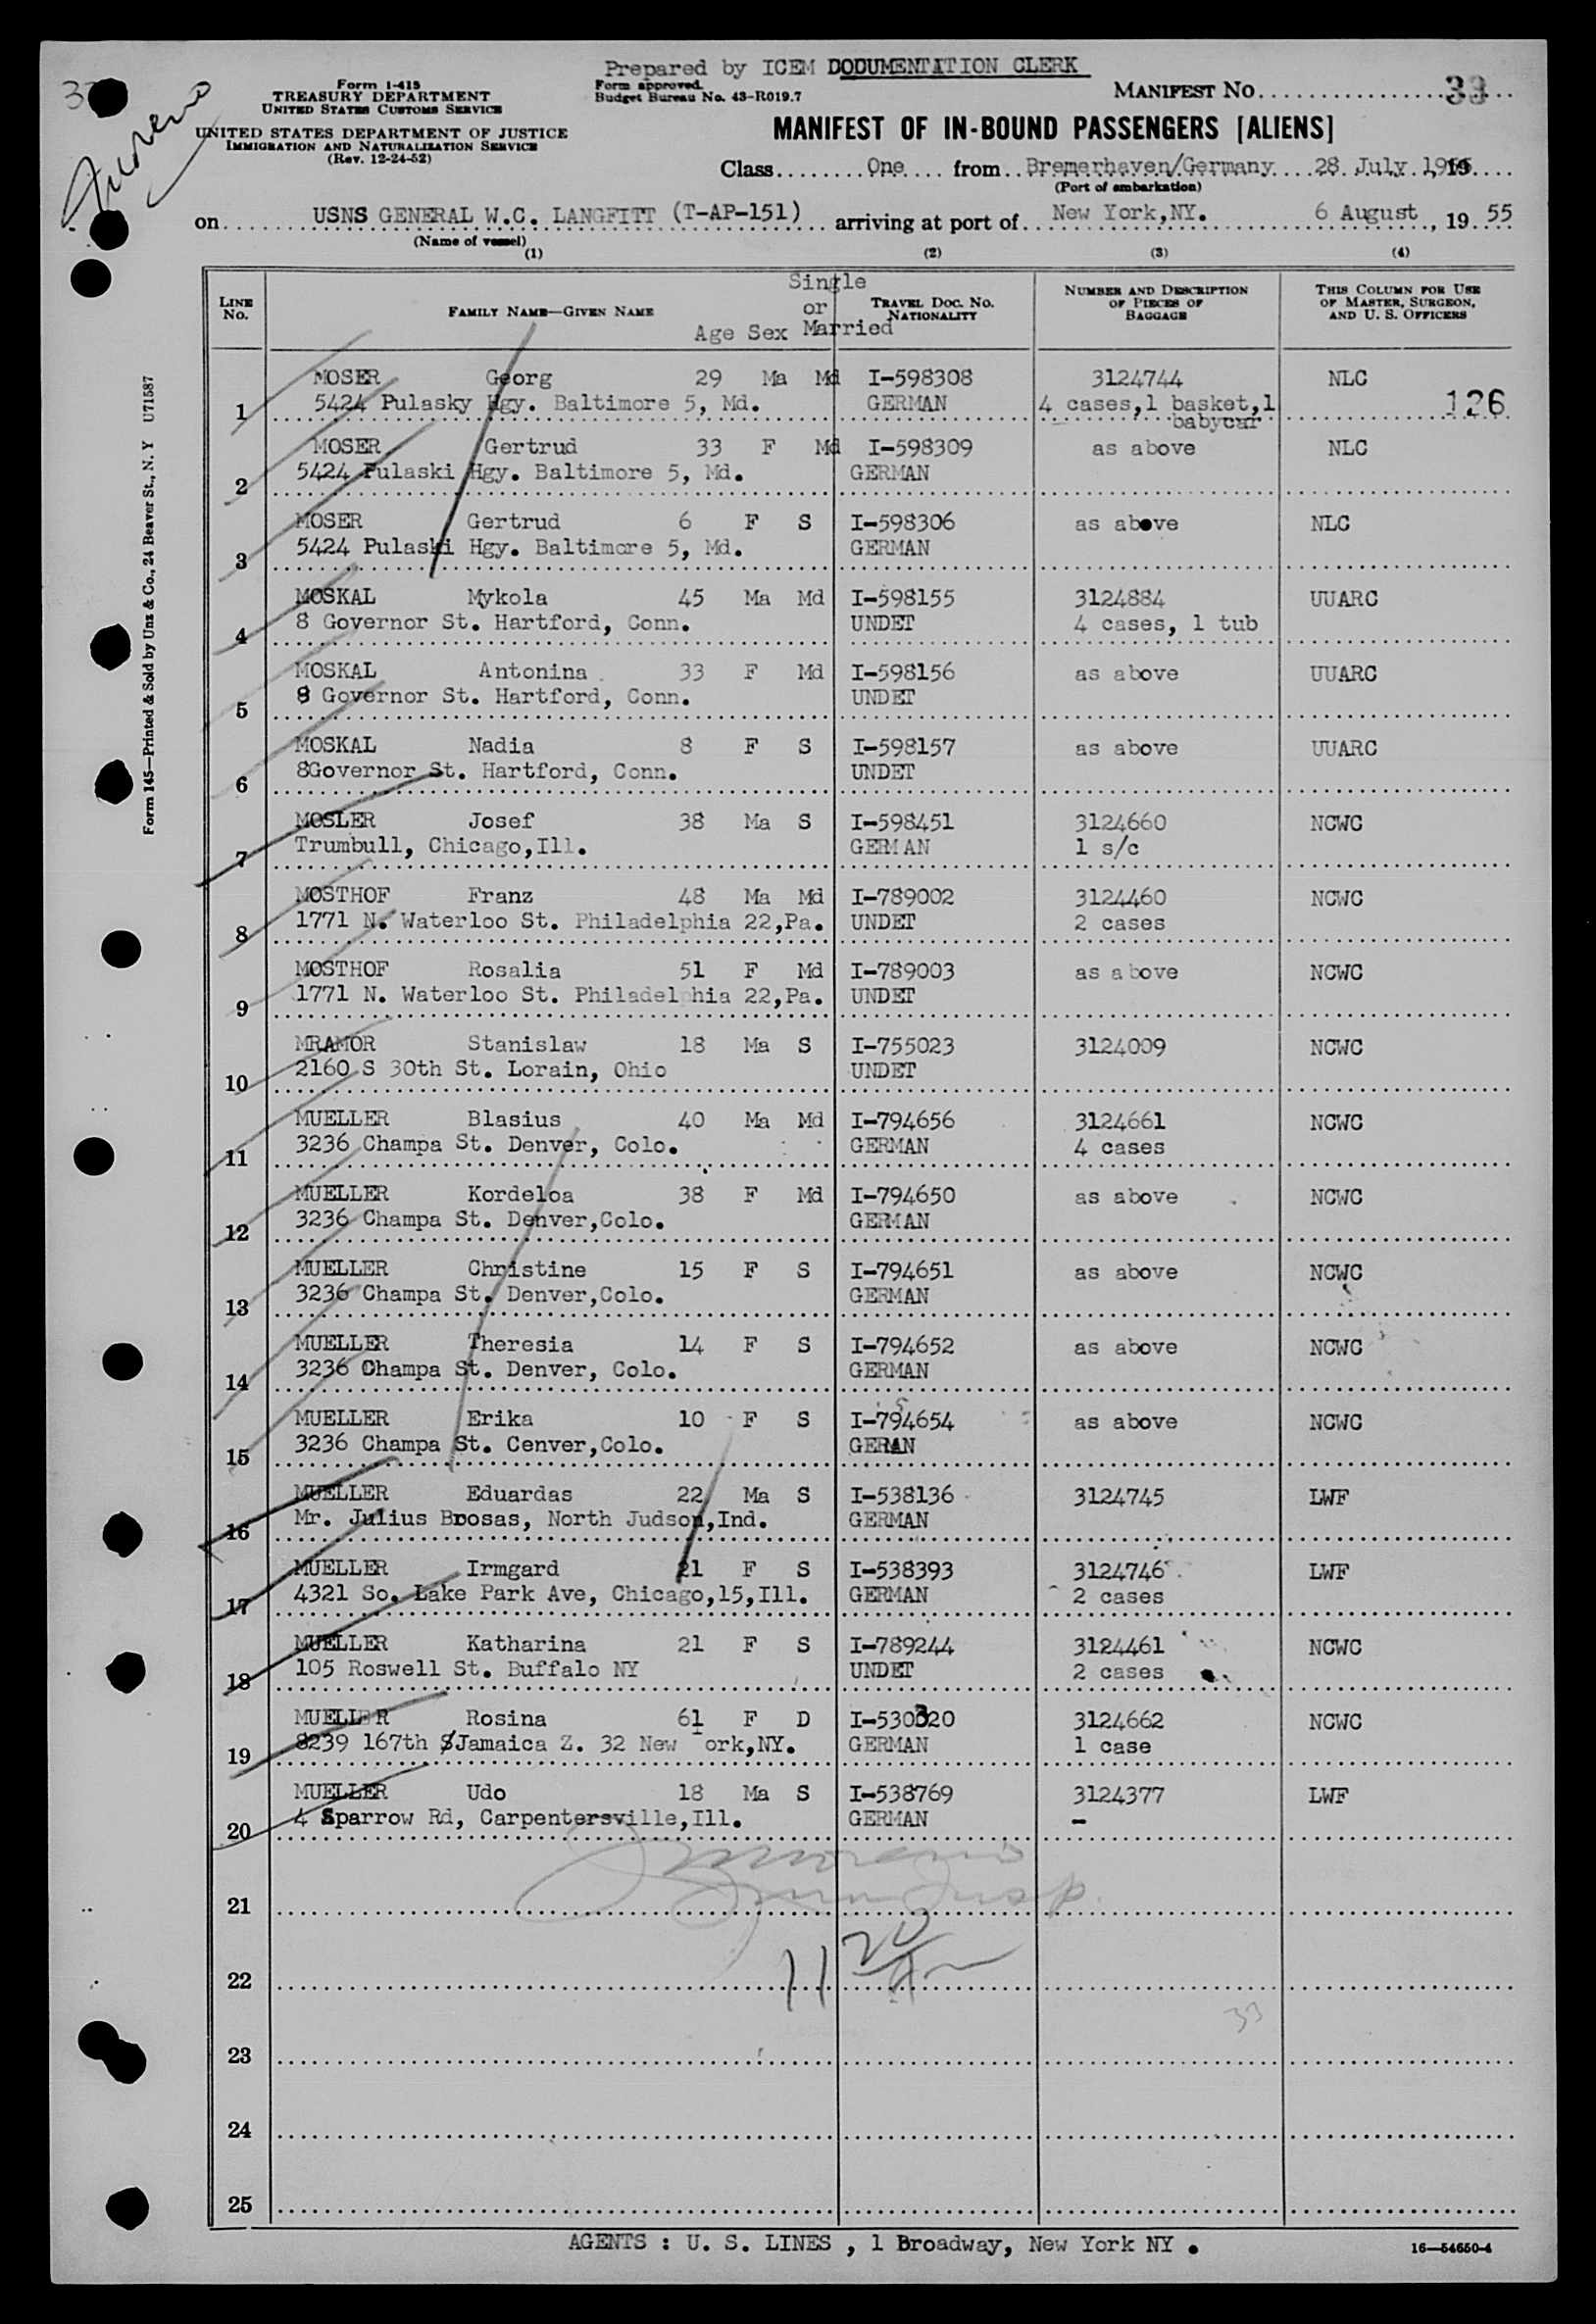 Prepared by ICEM DODUMENTATION CLERK
Form I-415
TREASURY DEPARTMENT
UNITED STATES CUSTOMS SERVICE
Form approved.
Budget Bureau No. 43-R019.7
MANIFEST NO. 33
UNITED STATES DEPARTMENT OF JUSTICE
IMMIGRATION AND NATURALIZATION SERVICE
(Rev. 12-24-52)
MANIFEST OF IN-BOUND PASSENGERS [ALIENS]
Class One from Bremerhaven/Germany 28 July
(Port of embarkation)
on USNS GENERAL W.C. LANGFITT (T-AP-151) arriving at port of New York,NY. 6 August, 19 55
(Name of vessel)
(1) (2) (3) (4)
LINE NO. FAMILY NAME—GIVEN NAME Age Sex Single or Married TRAVEL DOC. NO. NATIONALITY NUMBER AND DESCRIPTION OF PIECES OF BAGGAGE THIS COLUMN FOR USE OF MASTER, SURGEON, AND U. S. OFFICERS
MOSER Georg 29 Ma Md I-598308 3124744 NLC
1 5424 Pulasky Hgy. Baltimore 5, Md. GERMAN 4 cases,1 basket,1 babycar 126
MOSER Gertrud 33 F Md I-598309 as above NLC
2 5424 Pulaski Hgy. Baltimore 5, Md. GERMAN
MOSER Gertrud 6 F S I-598306 as above NLC
3 5424 Pulaski Hgy. Baltimore 5, Md. GERMAN
MOSKAL Mykola 45 Ma Md I-598155 3124884 UUARC
4 8 Governor St. Hartford, Conn. UNDET 4 cases, 1 tub
MOSKAL Antonina 33 F Md I-598156 as above UUARC
5 8 Governor St. Hartford, Conn. UNDET
MOSKAL Nadia 8 F S I-598157 as above UUARC
6 8Governor St. Hartford, Conn. UNDET
MOSLER Josef 38 Ma S I-598451 3124660 NCWC
7 Trumbull, Chicago,Ill. GERMAN 1 s/c
MOSTHOF Franz 48 Ma Md I-789002 3124460 NCWC
8 1771 N. Waterloo St. Philadelphia 22,Pa. UNDET 2 cases
MOSTHOF Rosalia 51 F Md I-789003 as above NCWC
9 1771 N. Waterloo St. Philadelphia 22,Pa. UNDET
MRAMOR Stanislaw 18 Ma S I-755023 3124009 NCWC
10 2160 S 30th St. Lorain, Ohio UNDET
MUELLER Blasius 40 Ma Md I-794656 3124661 NCWC
11 3236 Champa St. Denver, Colo. GERMAN 4 cases
MUELLER Kordeloa 38 F Md I-794650 as above NCWC
12 3236 Champa St. Denver,Colo. GERMAN
MUELLER Christine 15 F S I-794651 as above NCWC
13 3236 Champa St. Denver,Colo. GERMAN
MUELLER Theresia 14 F S I-794652 as above NCWC
14 3236 Champa St. Denver, Colo. GERMAN
MUELLER Erika 10 F S I-794654 as above NCWC
15 3236 Champa St. Cenver,Colo. GERAN
MUELLER Eduardas 22 Ma S I-538136 3124745 LWF
16 Mr. Julius Brosas, North Judson,Ind. GERMAN
MUELLER Irmgard 21 F S I-538393 3124746 LWF
17 4321 So. Lake Park Ave, Chicago,15,Ill. GERMAN 2 cases
MUELLER Katharina 21 F S I-789244 3124461 NCWC
18 105 Roswell St. Buffalo NY UNDET 2 cases
MUELLER Rosina 61 F D I-530320 3124662 NCWC
19 8239 167th SJamaica Z. 32 New ork,NY. GERMAN 1 case
MUELLER Udo 18 Ma S I-538769 3124377 LWF
20 4 Sparrow Rd, Carpentersville,Ill. GERMAN -
21
22
33
23
24
25
AGENTS : U. S. LINES , 1 Broadway, New York NY .
16—54650-4
Form 145—Printed & Sold by Unz & Co., 24 Beaver St., N. Y U71587